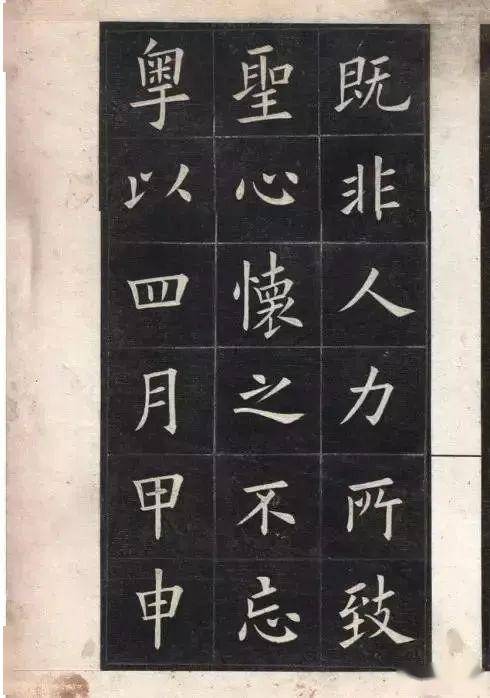 既非人力所致
聖心懷之不忘
粵以四月甲申